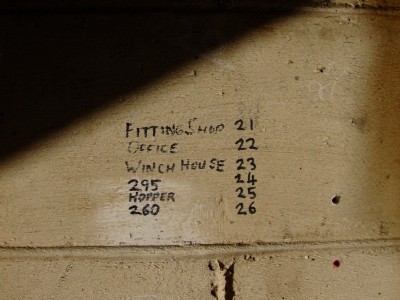 FITTING SHOP 21
OFFICE 22
WINCH HOUSE 23
295 24
HOPPER 25
260 26